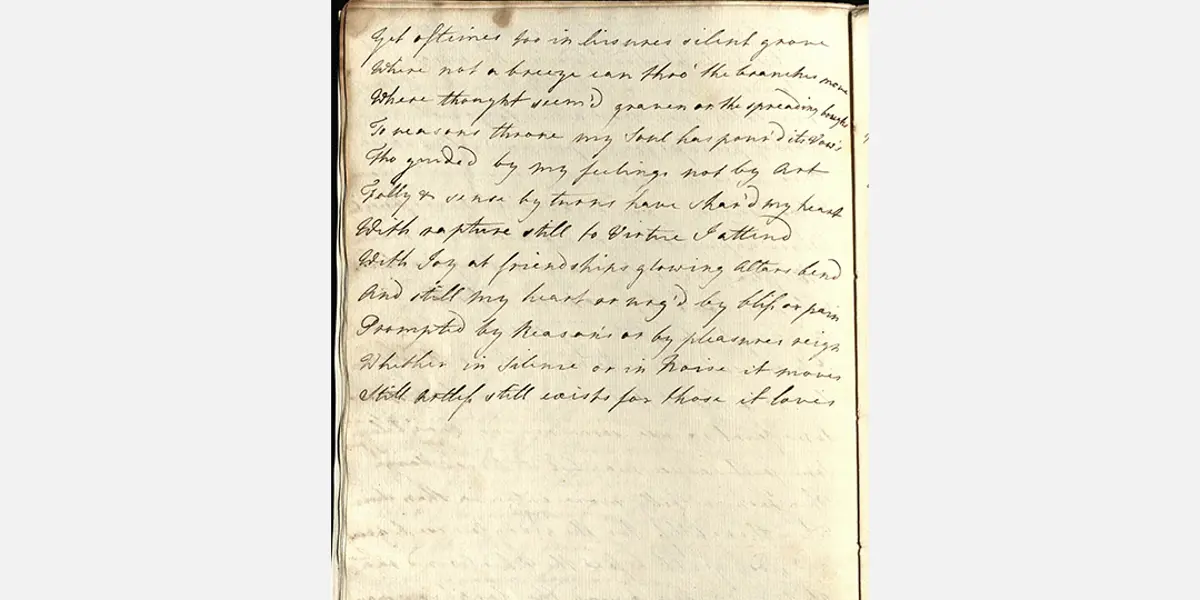 Yet oftimes too in liesures silent grove
Where not a breeze can thro' the branches move
Where thought seem'd graven on the spreading boughs
To reasons throne my Soul has pour'd its Vow's
Tho guided by my feelings not by Art
Folly & sense by turns have shar'd my heart
With rapture still to Virtue I attend
With Joy at friendships glowing Altars bend
And still my heart or urg'd by bliss or pain
Prompted by Reason's or by pleasures reign
Whether in Silence or in Noise it moves
Still artless still exists for those it loves